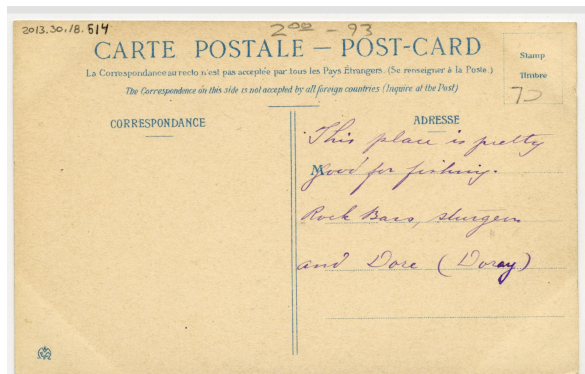 2013.30.18.514
2⁰⁰ - 93
CARTE POSTALE — POST-CARD
La Correspondance au recto n'est pas acceptée par tous les Pays Étrangers. (Se renseigner à la Poste.)
The Correspondence on this side is not accepted by all foreign countries (Inquire at the Post)
Stamp
Timbre
70
CORRESPONDANCE
ADRESSE
This place is pretty
M
good for fishing.
Rock Bass, sturgeon
and Dore (Doray)